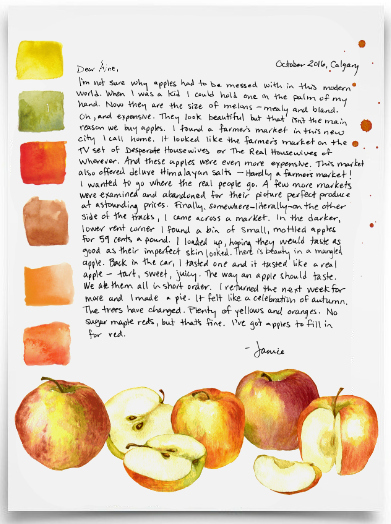 October 2016, Calgary
Dear Áine,
I'm not sure why apples had to be messed with in this modern
world. When I was a kid I could hold one in the palm of my
hand. Now they are the size of melons - mealy and bland.
Oh, and expensive. They look beautiful but that isn't the main
reason we buy apples. I found a farmer's market in this new
city I call home. It looked like the farmer's market on the
TV set of Desperate Housewives or The Real Housewives of
Wherever. And these apples were even more expensive. This market
also offered deluxe Himalayan salts - Hardly a farmer's market!
I wanted to go where the real people go. A few more markets
were examined and abandoned for their picture perfect produce
at astounding prices. Finally, somewhere-literally-on the other
side of the tracks, I came across a market. In the darker,
lower rent corner I found a bin of small, mottled apples
for 59 cents a pound. I loaded up, hoping they would taste as
good as their imperfect skin looked. There is beauty in a mangled
apple. Back in the car, I tasted one and it tasted like a real
apple - tart, sweet, juicy. The way an apple should taste.
We ate them all in short order. I returned the next week for
more and I made a pie. It felt like a celebration of autumn.
The trees have changed. Plenty of yellows and oranges. No
sugar maple reds, but that's fine. I've got apples to fill in
for red.
- Janice